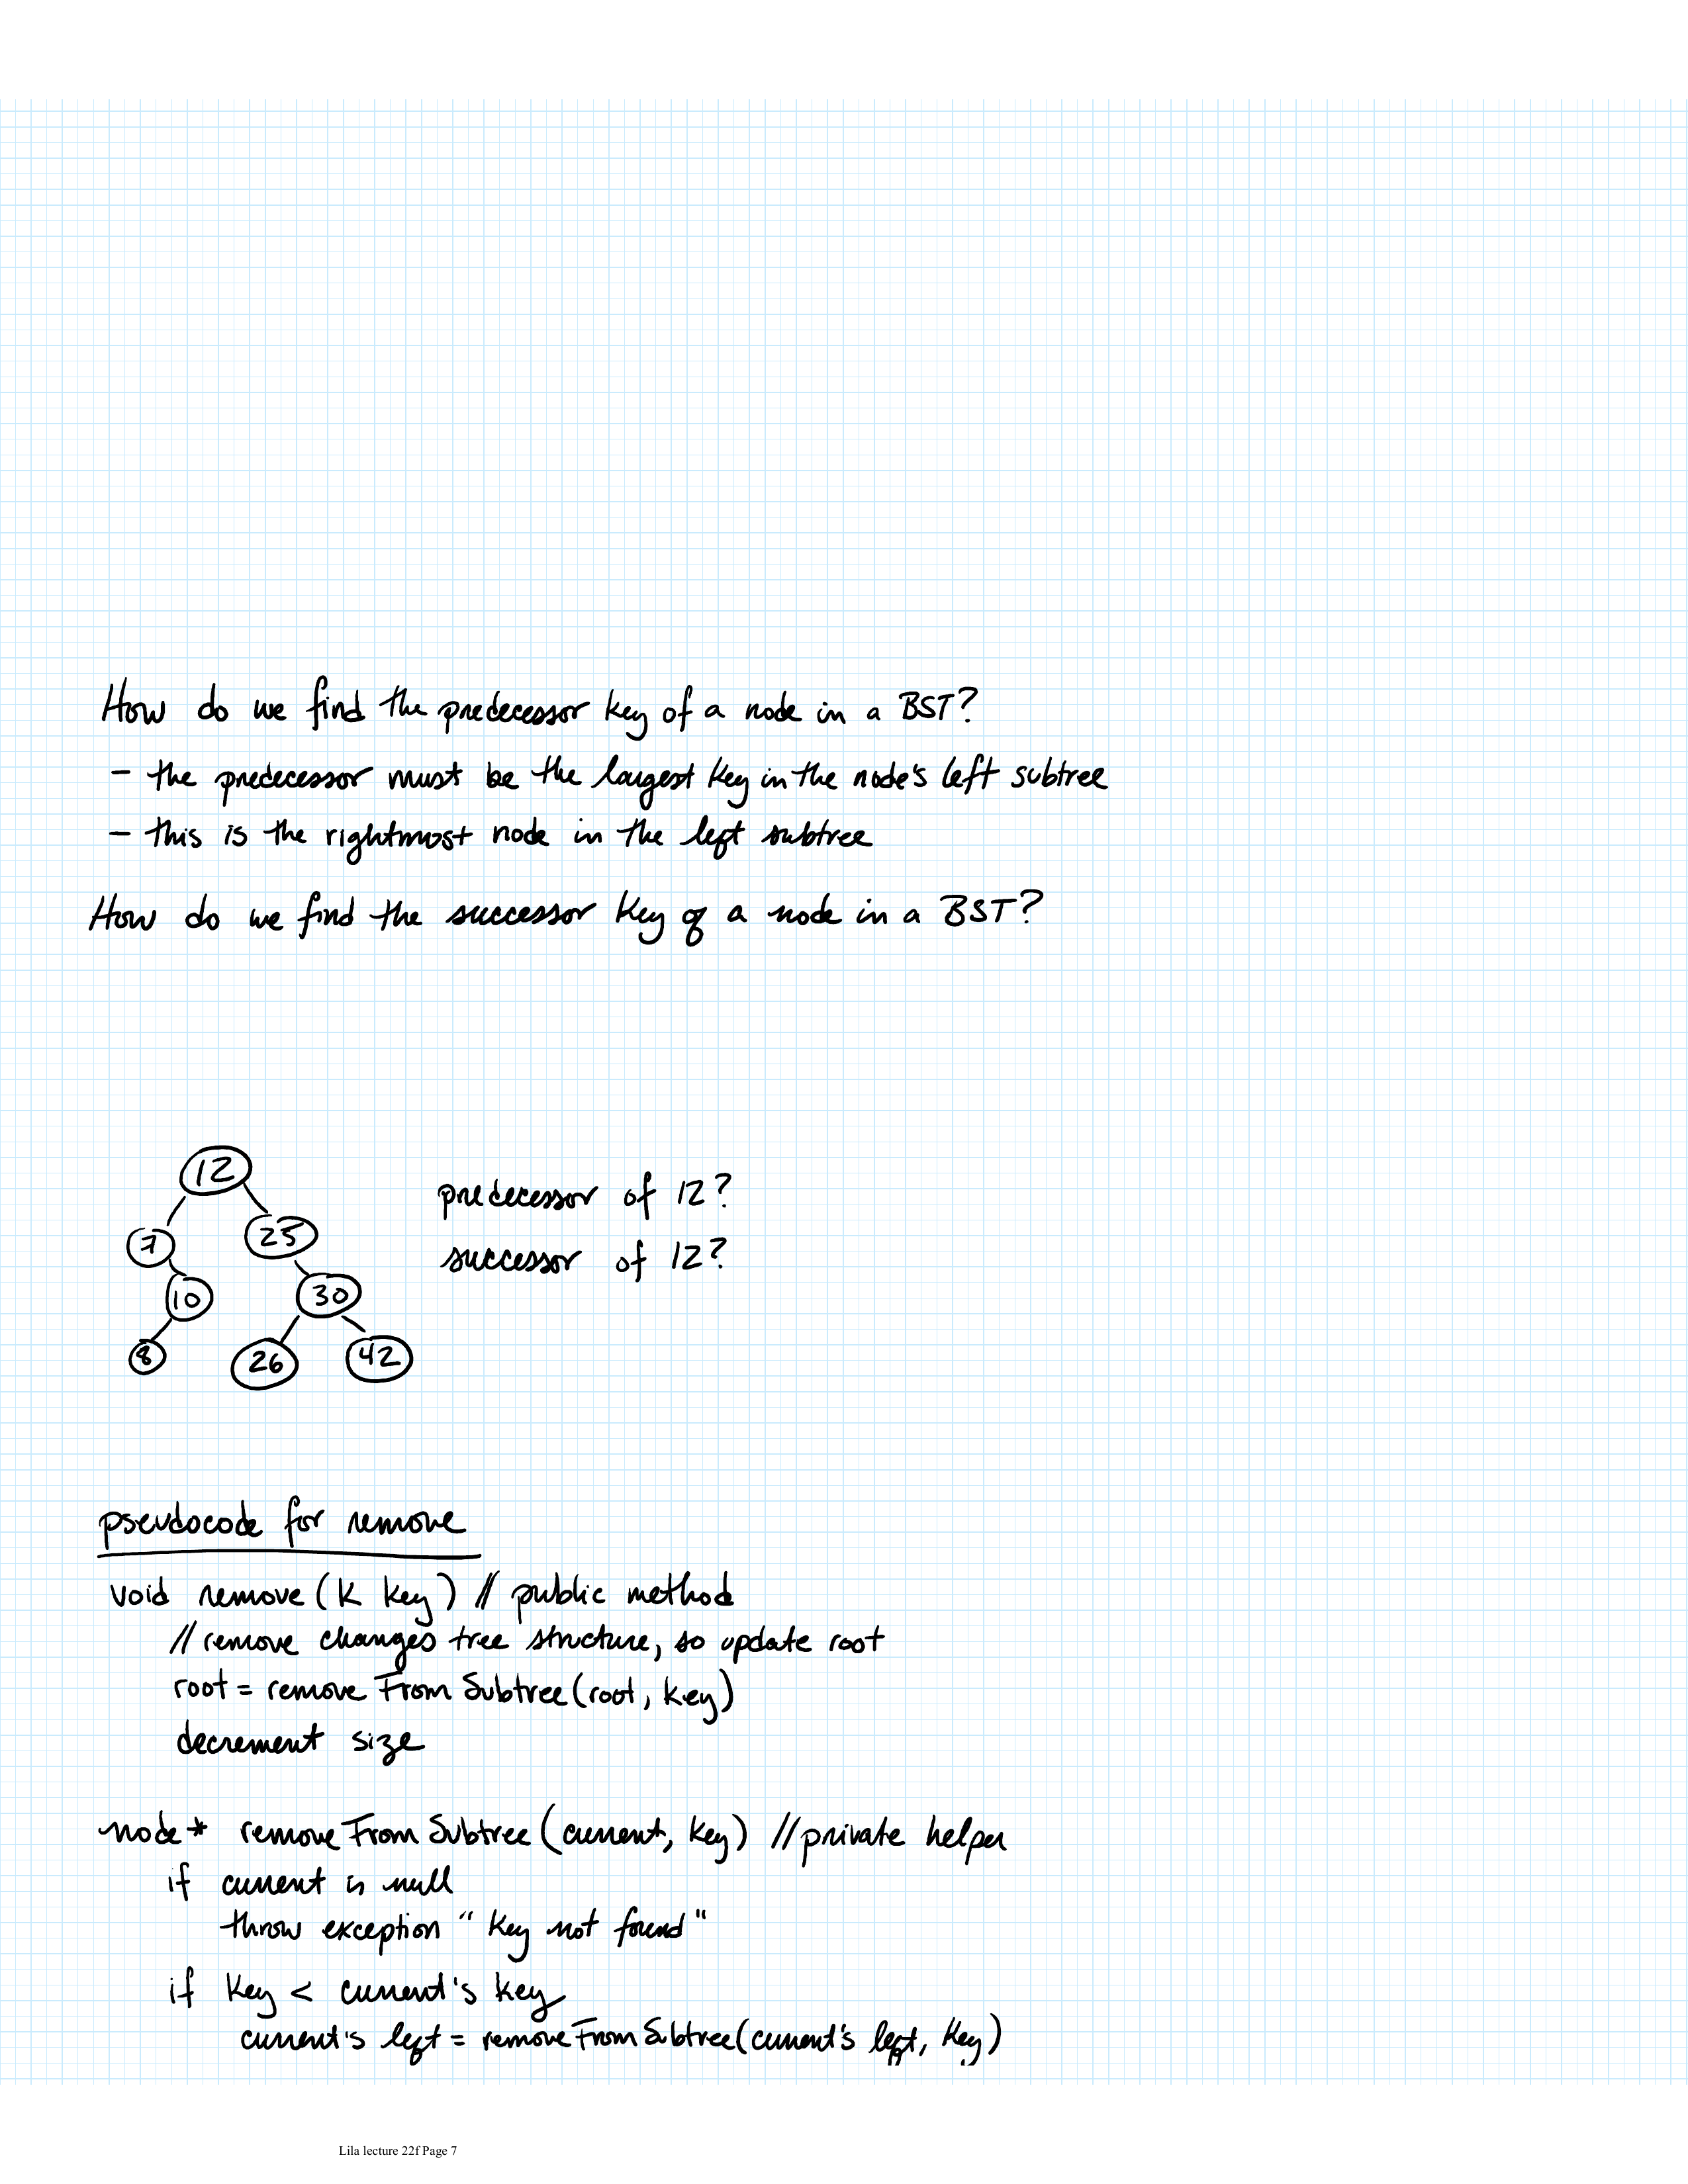 How do we find the predecessor key of a node in a BST?
- the predecessor must be the largest key in the node's left subtree
- this is the rightmost node in the left subtree
How do we find the successor key of a node in a BST?
12
predecessor of 12?
7 25
successor of 12?
10 30
8 26 42
pseudocode for remove
void remove (K key) // public method
// remove changes tree structure, so update root
root = removeFromSubtree(root, key)
decrement size
node* removeFromSubtree (current, key) // private helper
if current is null
throw exception "key not found"
if key < current's key
current's left = removeFromSubtree(current's left, key)
Lila lecture 22f Page 7